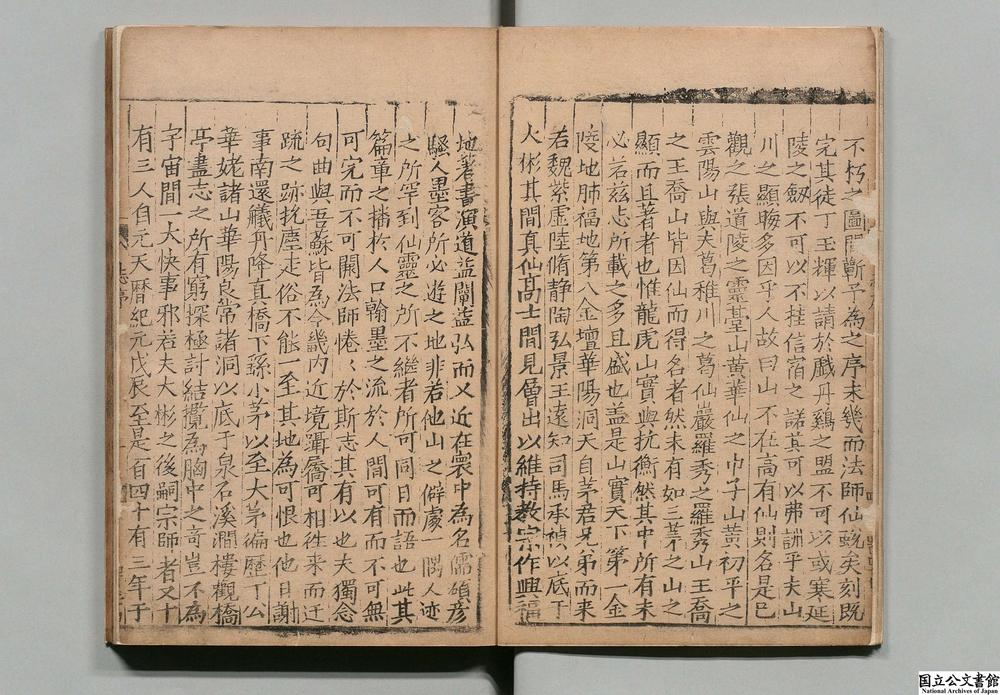 不朽之圖開斷子為之序未幾而法師仙蛻矣刻既
完其徒丁玉輝以請於戲丹鷄之盟不可以或寒延
陵之劔不可以不挂信宿之諾其可以弗訓乎夫山
川之顯晦多因乎人故曰山不在高有仙則名是已
觀之張道陵之靈臺山黃華仙之巾子山黃初平之
雲陽山與夫葛稚川之葛仙巖羅秀之羅秀山王喬
之王喬山皆因仙而得名者然未有如三茅之山之
顯而且著者也惟龍虎山實與抗衡然其中所有未
必若玆志所載之多且盛也盖是山實天下第一金
陵地肺福地第八金壇華陽洞天自茅君兄弟而来
若魏紫虛陸脩静陶弘景王遠知司馬承禎以底于
大彬其間真仙髙士間見層出以維持教宗作興福
地著書演道益闡益弘而又近在寰中為名儒碩彦
騷人墨客所必遊之地非若他山之僻處一隅人迹
之所罕到仙靈之所不繼者所可同日而語也此其
篇章之播於人口翰墨之流於人間可有而不可無
可完而不可闕法師惓〻於斯志其有以也夫獨念
句曲與吾蘇皆為今畿内近境躡屩可相徃来而迂
疏之跡抗塵走俗不能一至其地為可恨也他日謝
事南還艤舟降真橋下孫小茅以至大茅徧歷丁公
華姥諸山華陽良常諸洞以底于泉石溪澗樓觀橋
亭盡志之所有窮探極討結攬為胸中之奇豈不為
宇宙間一大快事邪若夫大彬之後嗣宗師者又十
有三人自元天曆紀元戊辰至是自四十有三年于
国立公文書館
National Archives of Japan